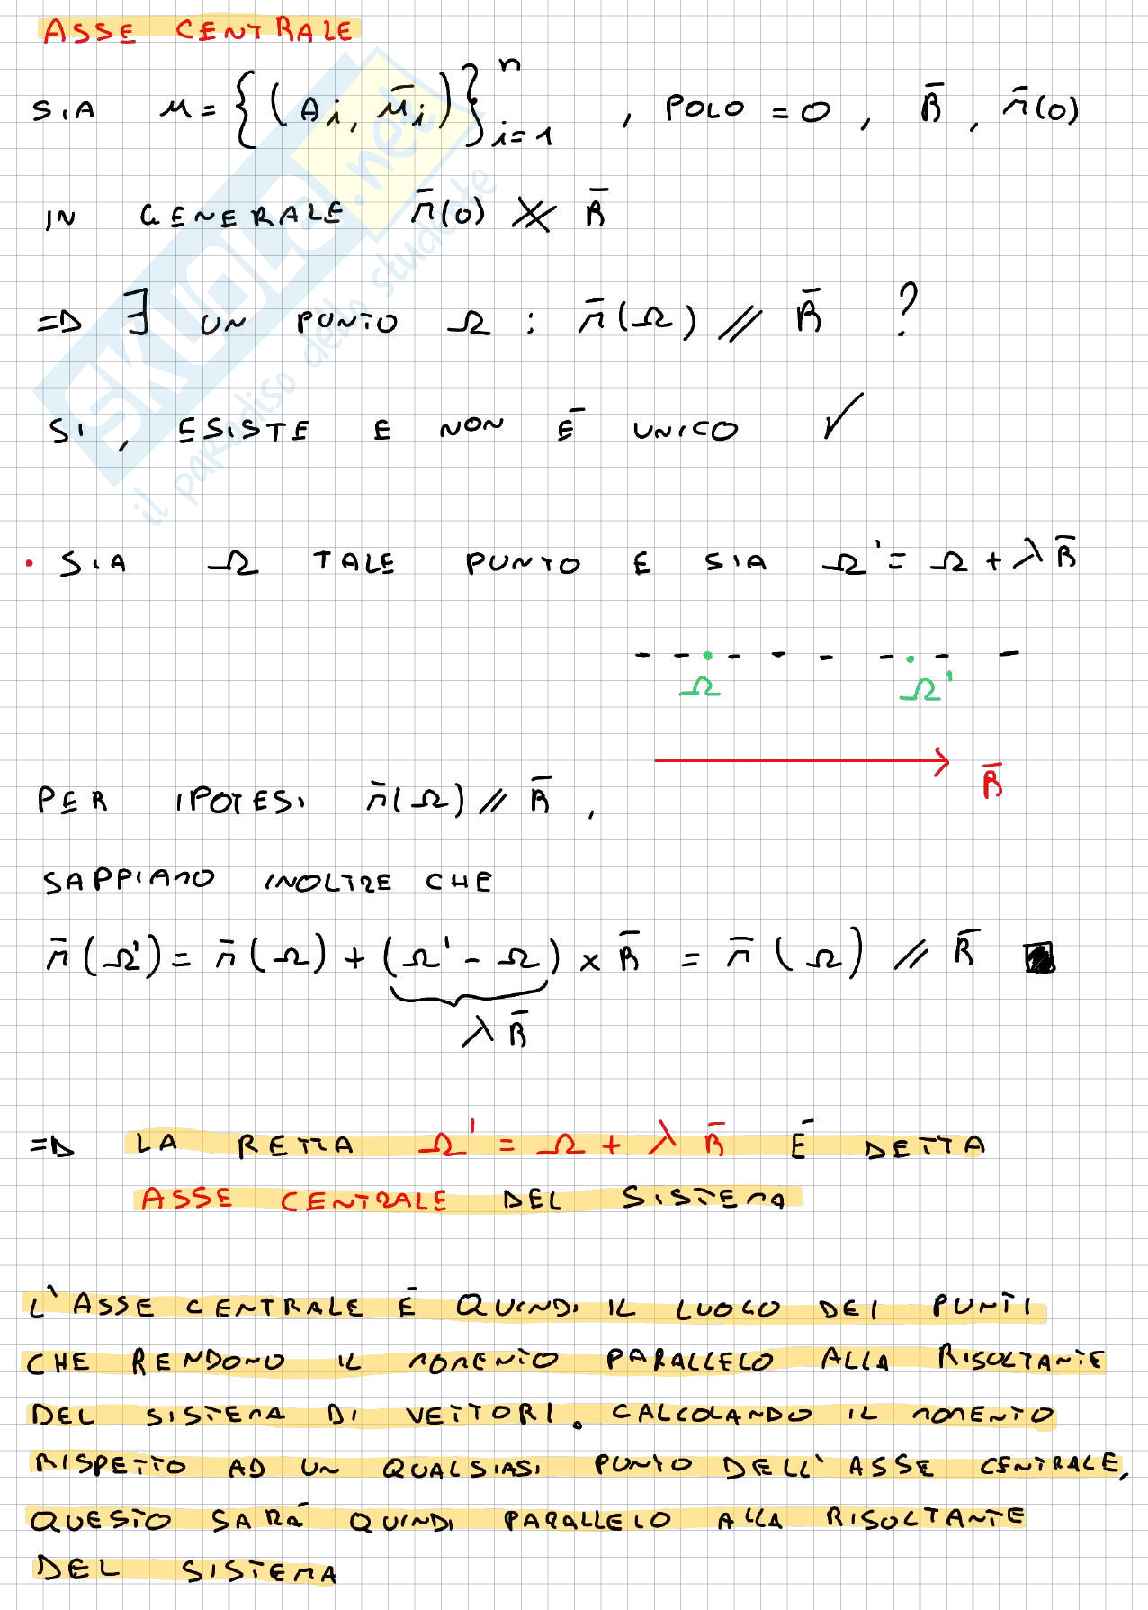 ASSE CENTRALE
SIA μ = { (Ai, ūi) }ⁿ i=1 , POLO = O , R̄ , M̄(O)
IN GENERALE M̄(O) ∦ R̄
=> ∃ UN PUNTO Ω : M̄(Ω) // R̄ ?
SI, ESISTE E NON É UNICO ✓
• SIA Ω TALE PUNTO E SIA Ω' = Ω + λR̄
Ω Ω'
R̄
PER IPOTESI M̄(Ω) // R̄ ,
SAPPIAMO INOLTRE CHE
M̄(Ω') = M̄(Ω) + (Ω' - Ω) × R̄ = M̄(Ω) // R̄ ■
λR̄
=> LA RETTA Ω' = Ω + λ R̄ É DETTA
ASSE CENTRALE DEL SISTEMA
L'ASSE CENTRALE É QUINDI IL LUOGO DEI PUNTI
CHE RENDONO IL MOMENTO PARALLELO ALLA RISULTANTE
DEL SISTEMA DI VETTORI. CALCOLANDO IL MOMENTO
RISPETTO AD UN QUALSIASI PUNTO DELL'ASSE CENTRALE,
QUESTO SARÁ QUINDI PARALLELO ALLA RISULTANTE
DEL SISTEMA
SKUOLA.net
il paradiso dello studente